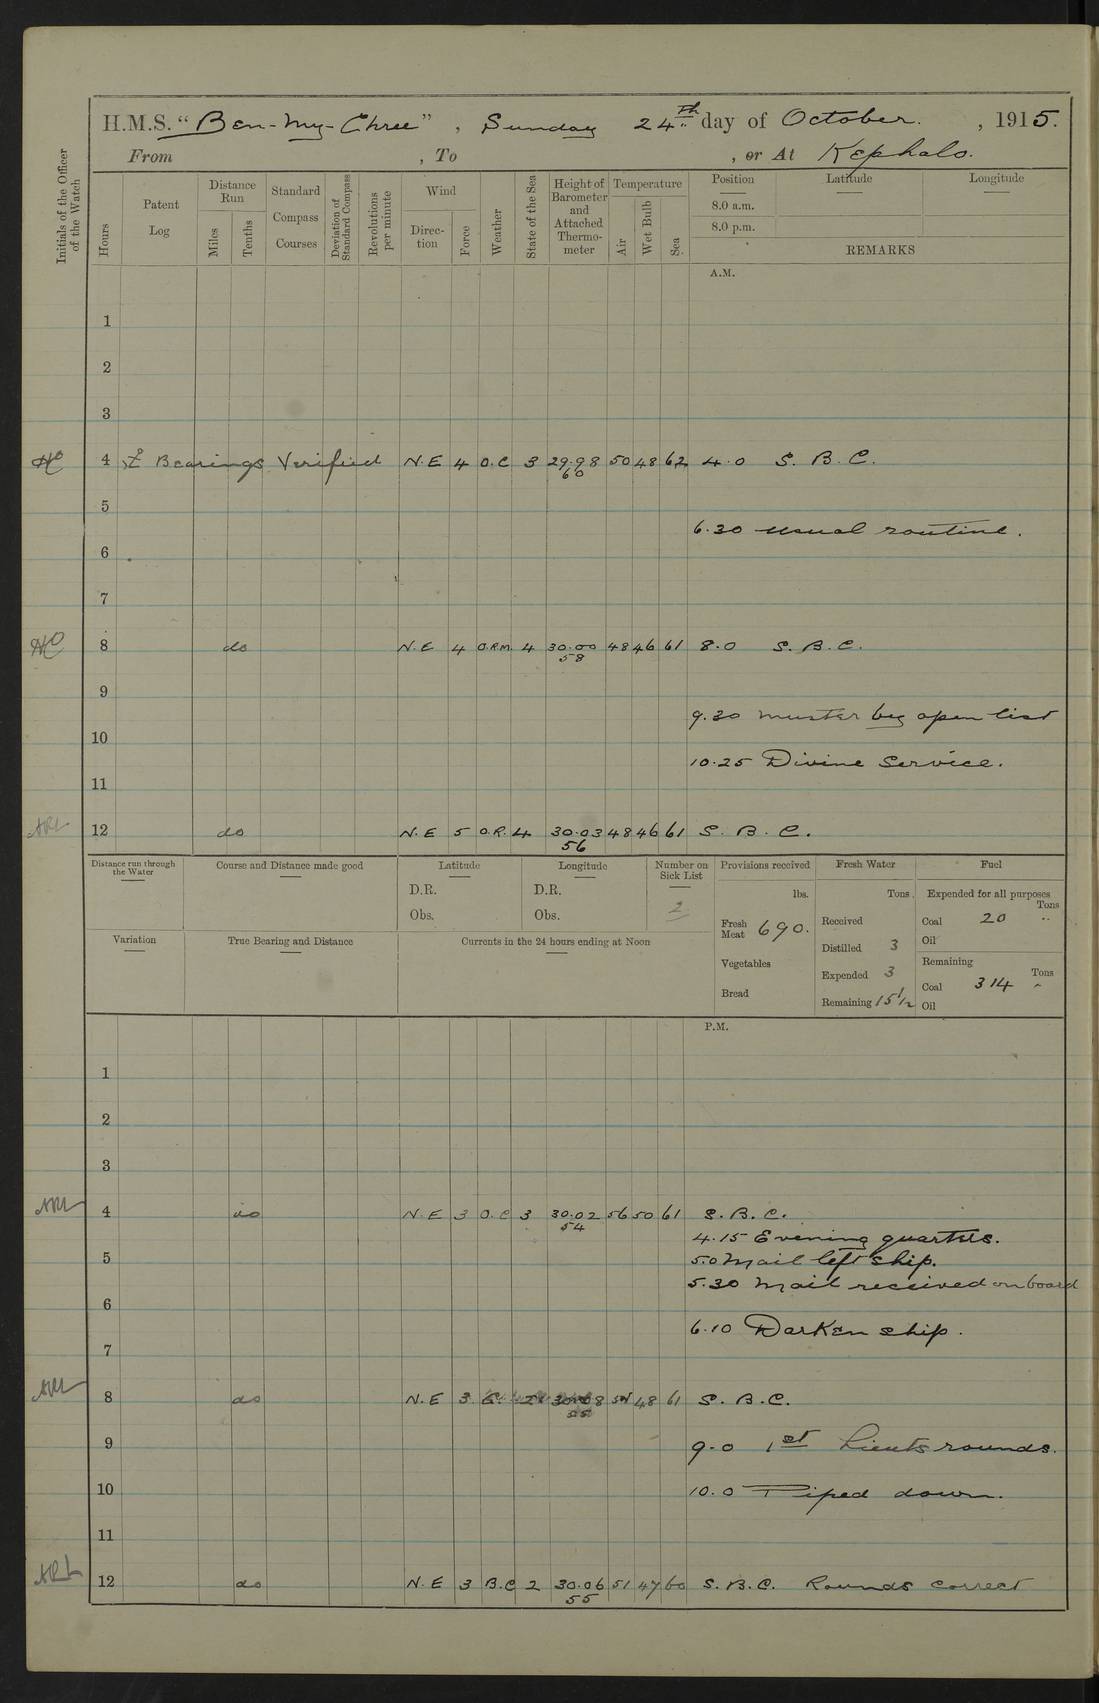 H.M.S. "Ben-My-Chree", Sunday 24th day of October, 1915.
From , To , or At Kephalo.
Initials of the Officer of the Watch
Hours
Patent Log
Distance Run
Miles
Tenths
Standard Compass Courses
Deviation of Standard Compass
Revolutions per minute
Wind
Direction
Force
Weather
State of the Sea
Height of Barometer and Attached Thermometer
Temperature
Air
Wet Bulb
Sea
Position Latitude Longitude
8.0 a.m.
8.0 p.m.
REMARKS
A.M.
1
2
3
4 Bearings Verified N.E 4 O.C 3 29.98 50 48 62 4.0 S. B. C.
60
5
6.30 usual routine.
6
7
8 do N.E 4 O.R.M. 4 30.00 48 46 61 8.0 S. B. C.
58
9
9.30 muster by open list
10
10.25 Divine Service.
11
12 do N.E 5 O.R. 4 30.03 48 46 61 S. B. C.
56
Distance run through the Water
Course and Distance made good
Latitude
D.R.
Obs.
Longitude
D.R.
Obs.
Number on Sick List
2
Provisions received
lbs.
Fresh Meat 690.
Vegetables
Bread
Fresh Water
Tons
Received
Distilled 3
Expended 3
Remaining 15 1/2
Fuel
Expended for all purposes
Tons
Coal 20 "
Oil
Remaining
Tons
Coal 314 "
Oil
Variation
True Bearing and Distance
Currents in the 24 hours ending at Noon
P.M.
1
2
3
4 do N.E 3 O.C 3 30.02 56 50 61 S. B. C.
54
4.15 Evening quarters.
5 5.0 Mail left ship.
5.30 Mail received on board
6
6.10 Darken ship.
7
8 do N.E 3 48 61 S. B. C.
55
9 9.0 1st Lieuts rounds.
10 10.0 Piped down.
11
12 do N.E 3 B.C 2 30.06 51 47 60 S. B. C. Rounds correct
55